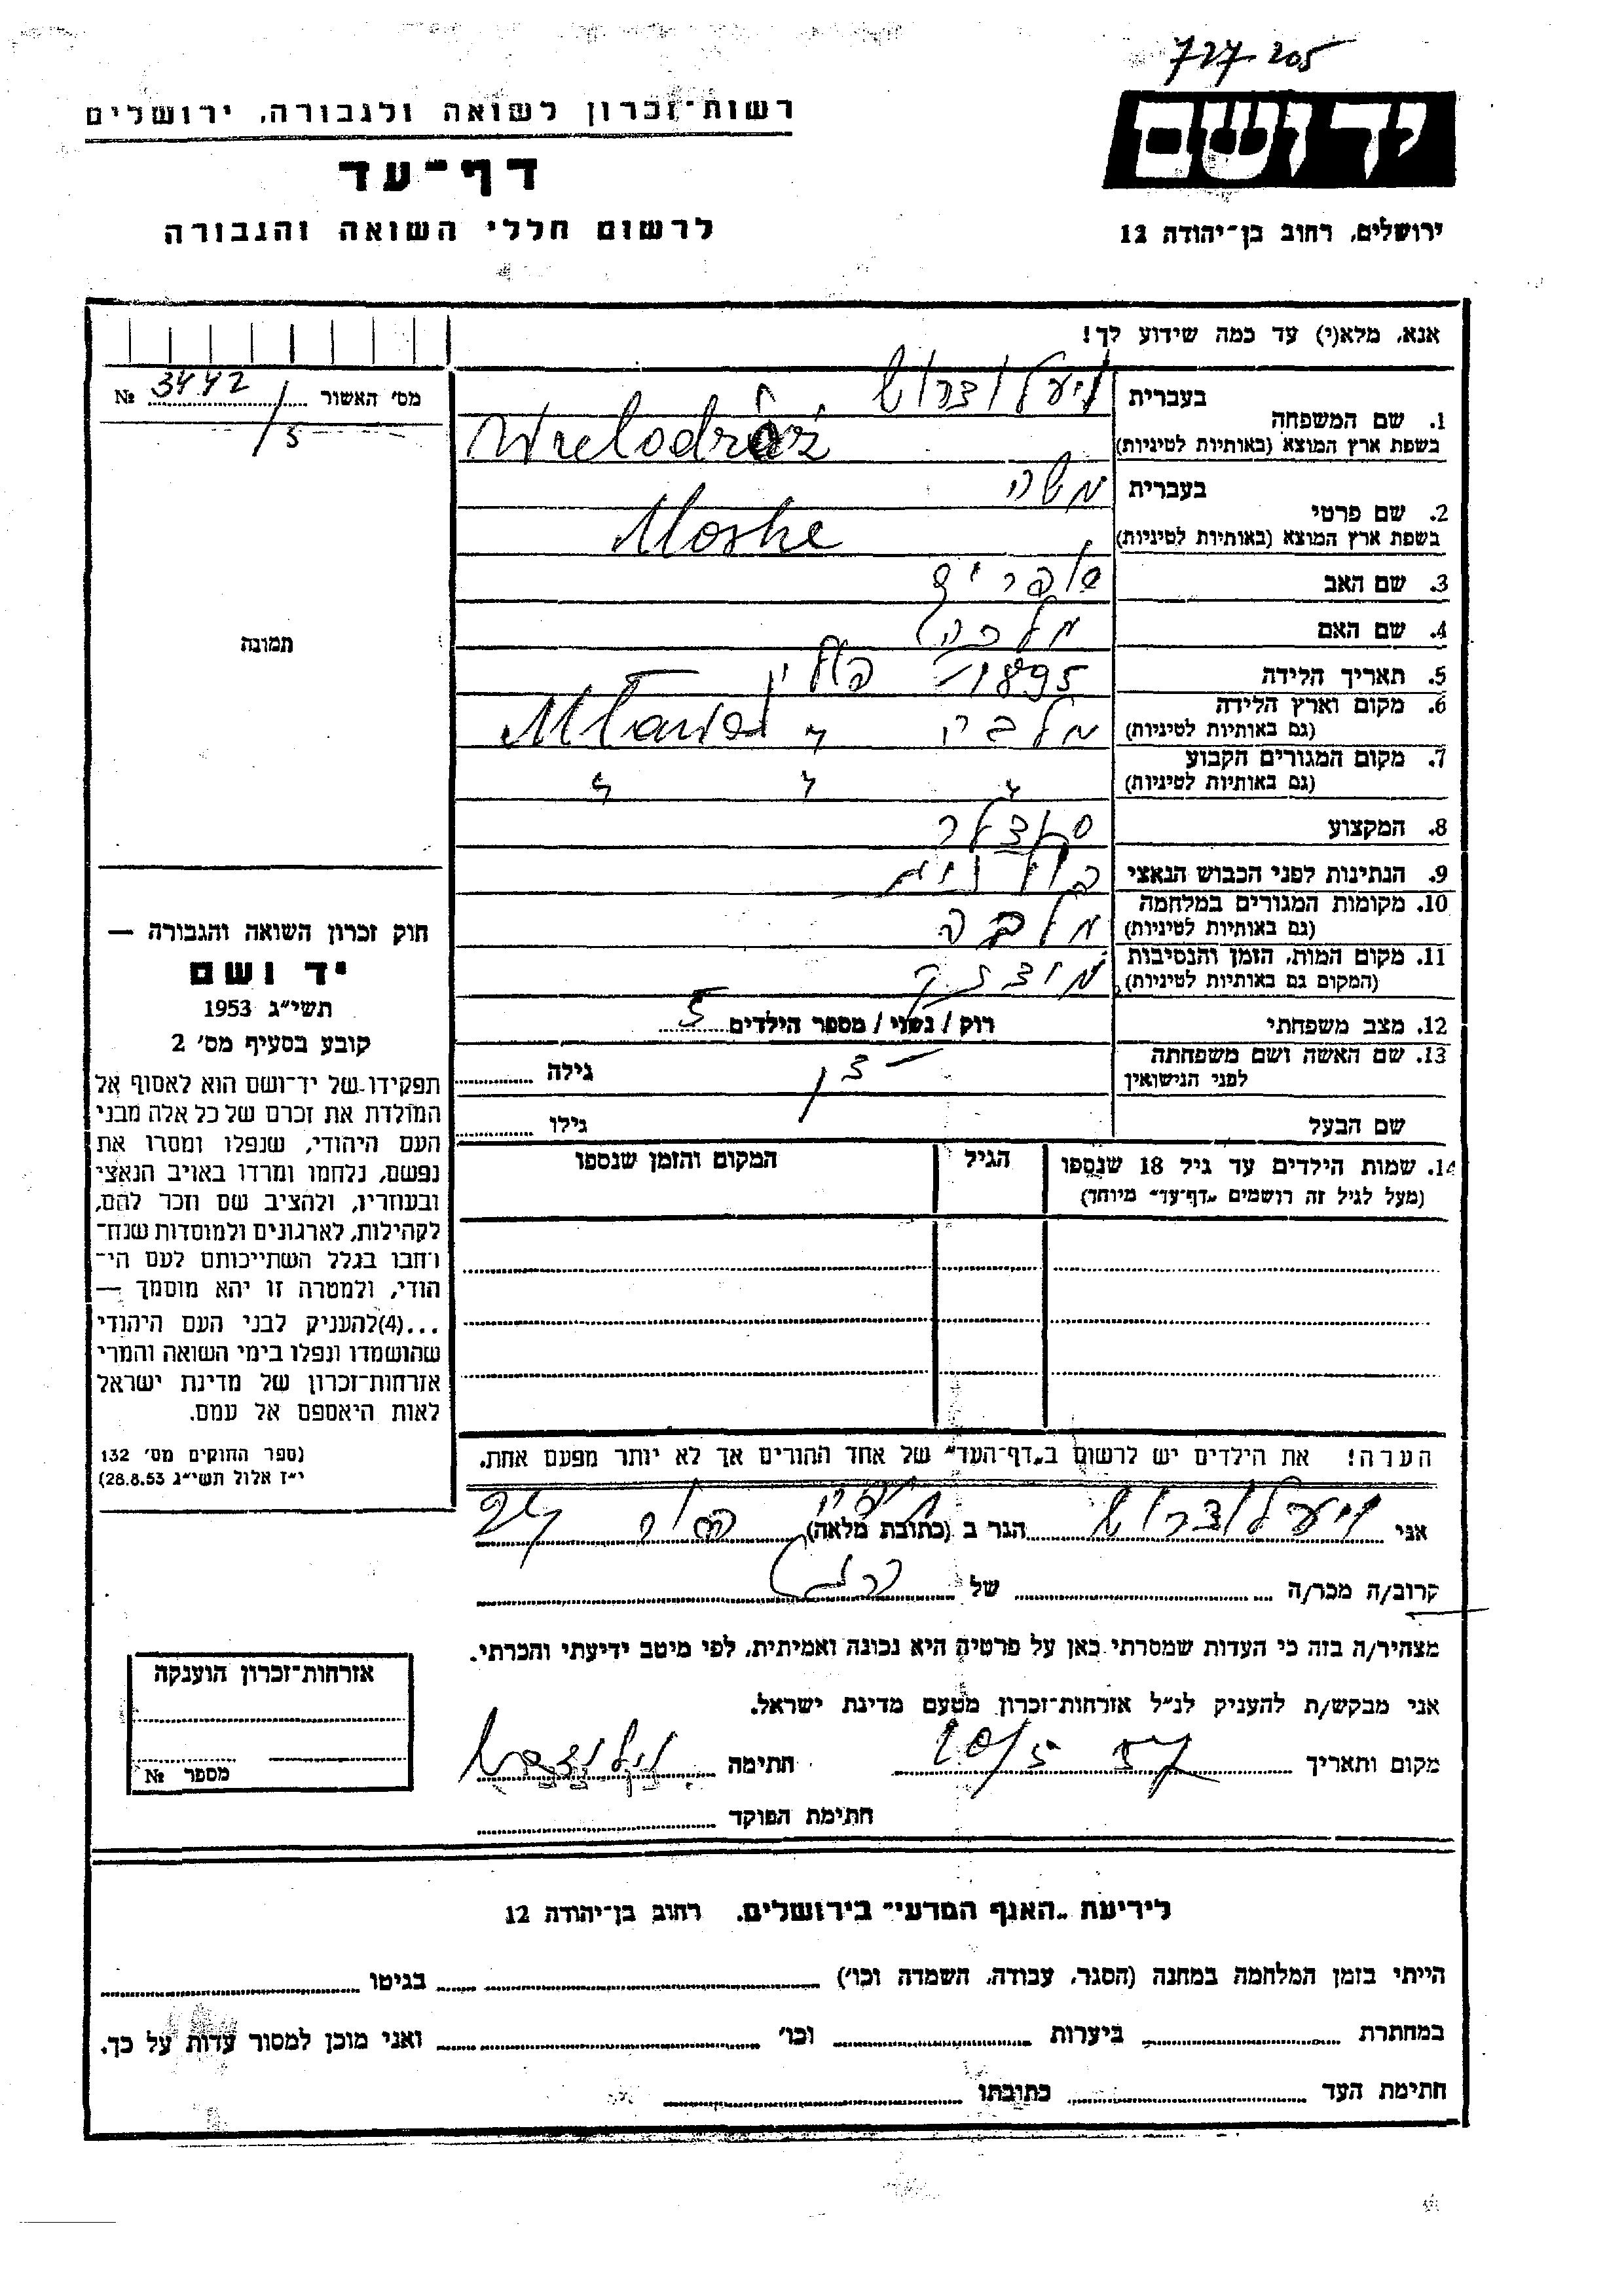 727 205
רשות־זכרון לשואה ולגבורה, ירושלים
ידושם
דף־עד
לרשום חללי השואה והגבורה
ירושלים, רחוב בן־יהודה 12
אנא, מלא(י) עד כמה שידוע לך!
מס' האשור 3442 №
5
1. שם המשפחה
בעברית
בשפת ארץ המוצא (באותיות לטיניות)
2. שם פרטי
בעברית משה
בשפת ארץ המוצא (באותיות לטיניות) Moshe
3. שם האב
4. שם האם מלכה
5. תאריך הלידה 1895
6. מקום וארץ הלידה
(גם באותיות לטיניות)
7. מקום המגורים הקבוע
(גם באותיות לטיניות)
8. המקצוע
9. הנתינות לפני הכבוש הנאצי
10. מקומות המגורים במלחמה
(גם באותיות לטיניות)
11. מקום המות, הזמן והנסיבות
(המקום גם באותיות לטיניות)
12. מצב משפחתי רוק / נשוי / מספר הילדים 5
13. שם האשה ושם משפחתה
לפני הנישואין
גילה
שם הבעל גילו
14. שמות הילדים עד גיל 18 שנספו
(מעל לגיל זה רושמים „דף־עד" מיוחד)
הגיל
המקום והזמן שנספו
תמונה
חוק זכרון השואה והגבורה —
יד ושם
תשי"ג 1953
קובע בסעיף מס' 2
תפקידו של יד־ושם הוא לאסוף אל
המולדת את זכרם של כל אלה מבני
העם היהודי, שנפלו ומסרו את
נפשם, נלחמו ומרדו באויב הנאצי
ובעוזריו, ולהציב שם וזכר להם,
לקהילות, לארגונים ולמוסדות שנח־
רחבו בגלל השתייכותם לעם הי־
הודי, ולמטרה זו יהא מוסמך —
...(4)להעניק לבני העם היהודי
שהושמדו ונפלו בימי השואה והמרי
אזרחות־זכרון של מדינת ישראל
לאות היאספם אל עמם.
(ספר החוקים מס' 132
י"ז אלול תשי"ג 28.8.53)
הערה! את הילדים יש לרשום ב„דף־העד" של אחד ההורים אך לא יותר מפעם אחת.
אני הגר ב (כתובת מלאה)
קרוב/ה מכר/ה של
מצהיר/ה בזה כי העדות שמסרתי כאן על פרטיה היא נכונה ואמיתית, לפי מיטב ידיעתי והכרתי.
אני מבקש/ת להעניק לנ"ל אזרחות־זכרון מטעם מדינת ישראל.
מקום ותאריך 20/5 57 חתימה
חתימת הפוקד
אזרחות־זכרון הוענקה
מספר №
לידיעת „האגף המדעי" בירושלים, רחוב בן־יהודה 12
הייתי בזמן המלחמה במחנה (הסגר, עבודה, השמדה וכו') בגיטו
במחתרת ביערות וכו' ואני מוכן למסור עדות על כך.
חתימת העד כתובתו